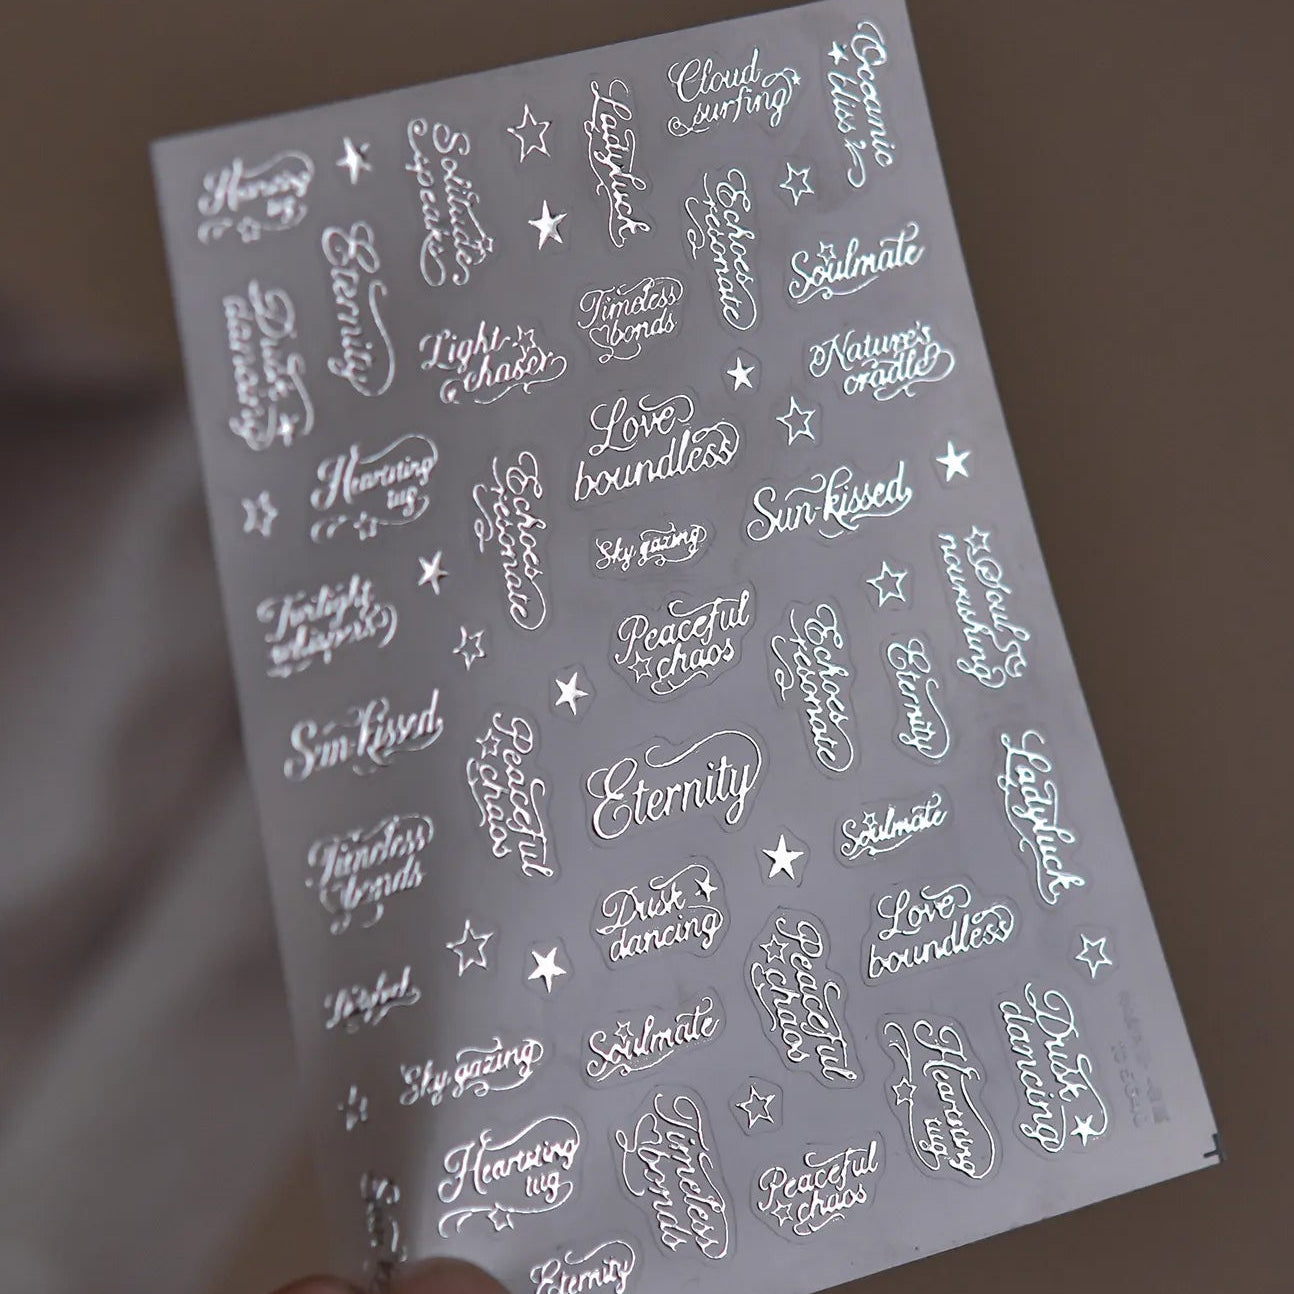 Cloud
surfing
Oceanic
bliss
Ladyluck
Solitude
speaks
Heartstring
tug
Eternity
Echoes
resonate
Soulmate
Timeless
bonds
Light
chaser
Dusk
dancing
Nature's
cradle
Love
boundless
Heartstring
tug
Echoes
resonate
Sun-kissed
Sky gazing
Twilight
whispers
Peaceful
chaos
Echoes
resonate
Eternity
Soul
nourishing
Sun-kissed
Peaceful
chaos
Eternity
Ladyluck
Soulmate
Timeless
bonds
Dusk
dancing
Love
boundless
Peaceful
chaos
Soulmate
Sky gazing
Heartstring
tug
Dusk
dancing
Heartstring
tug
Timeless
bonds
Peaceful
chaos
Eternity